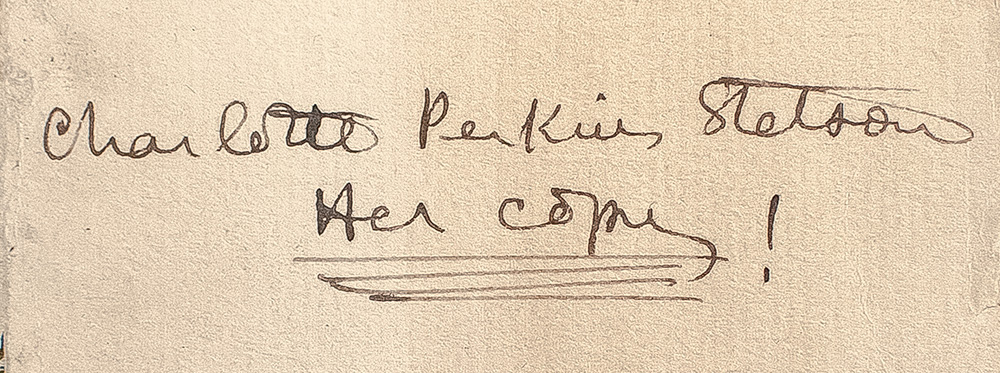 Charlotte Perkins Stetson
Her copy!